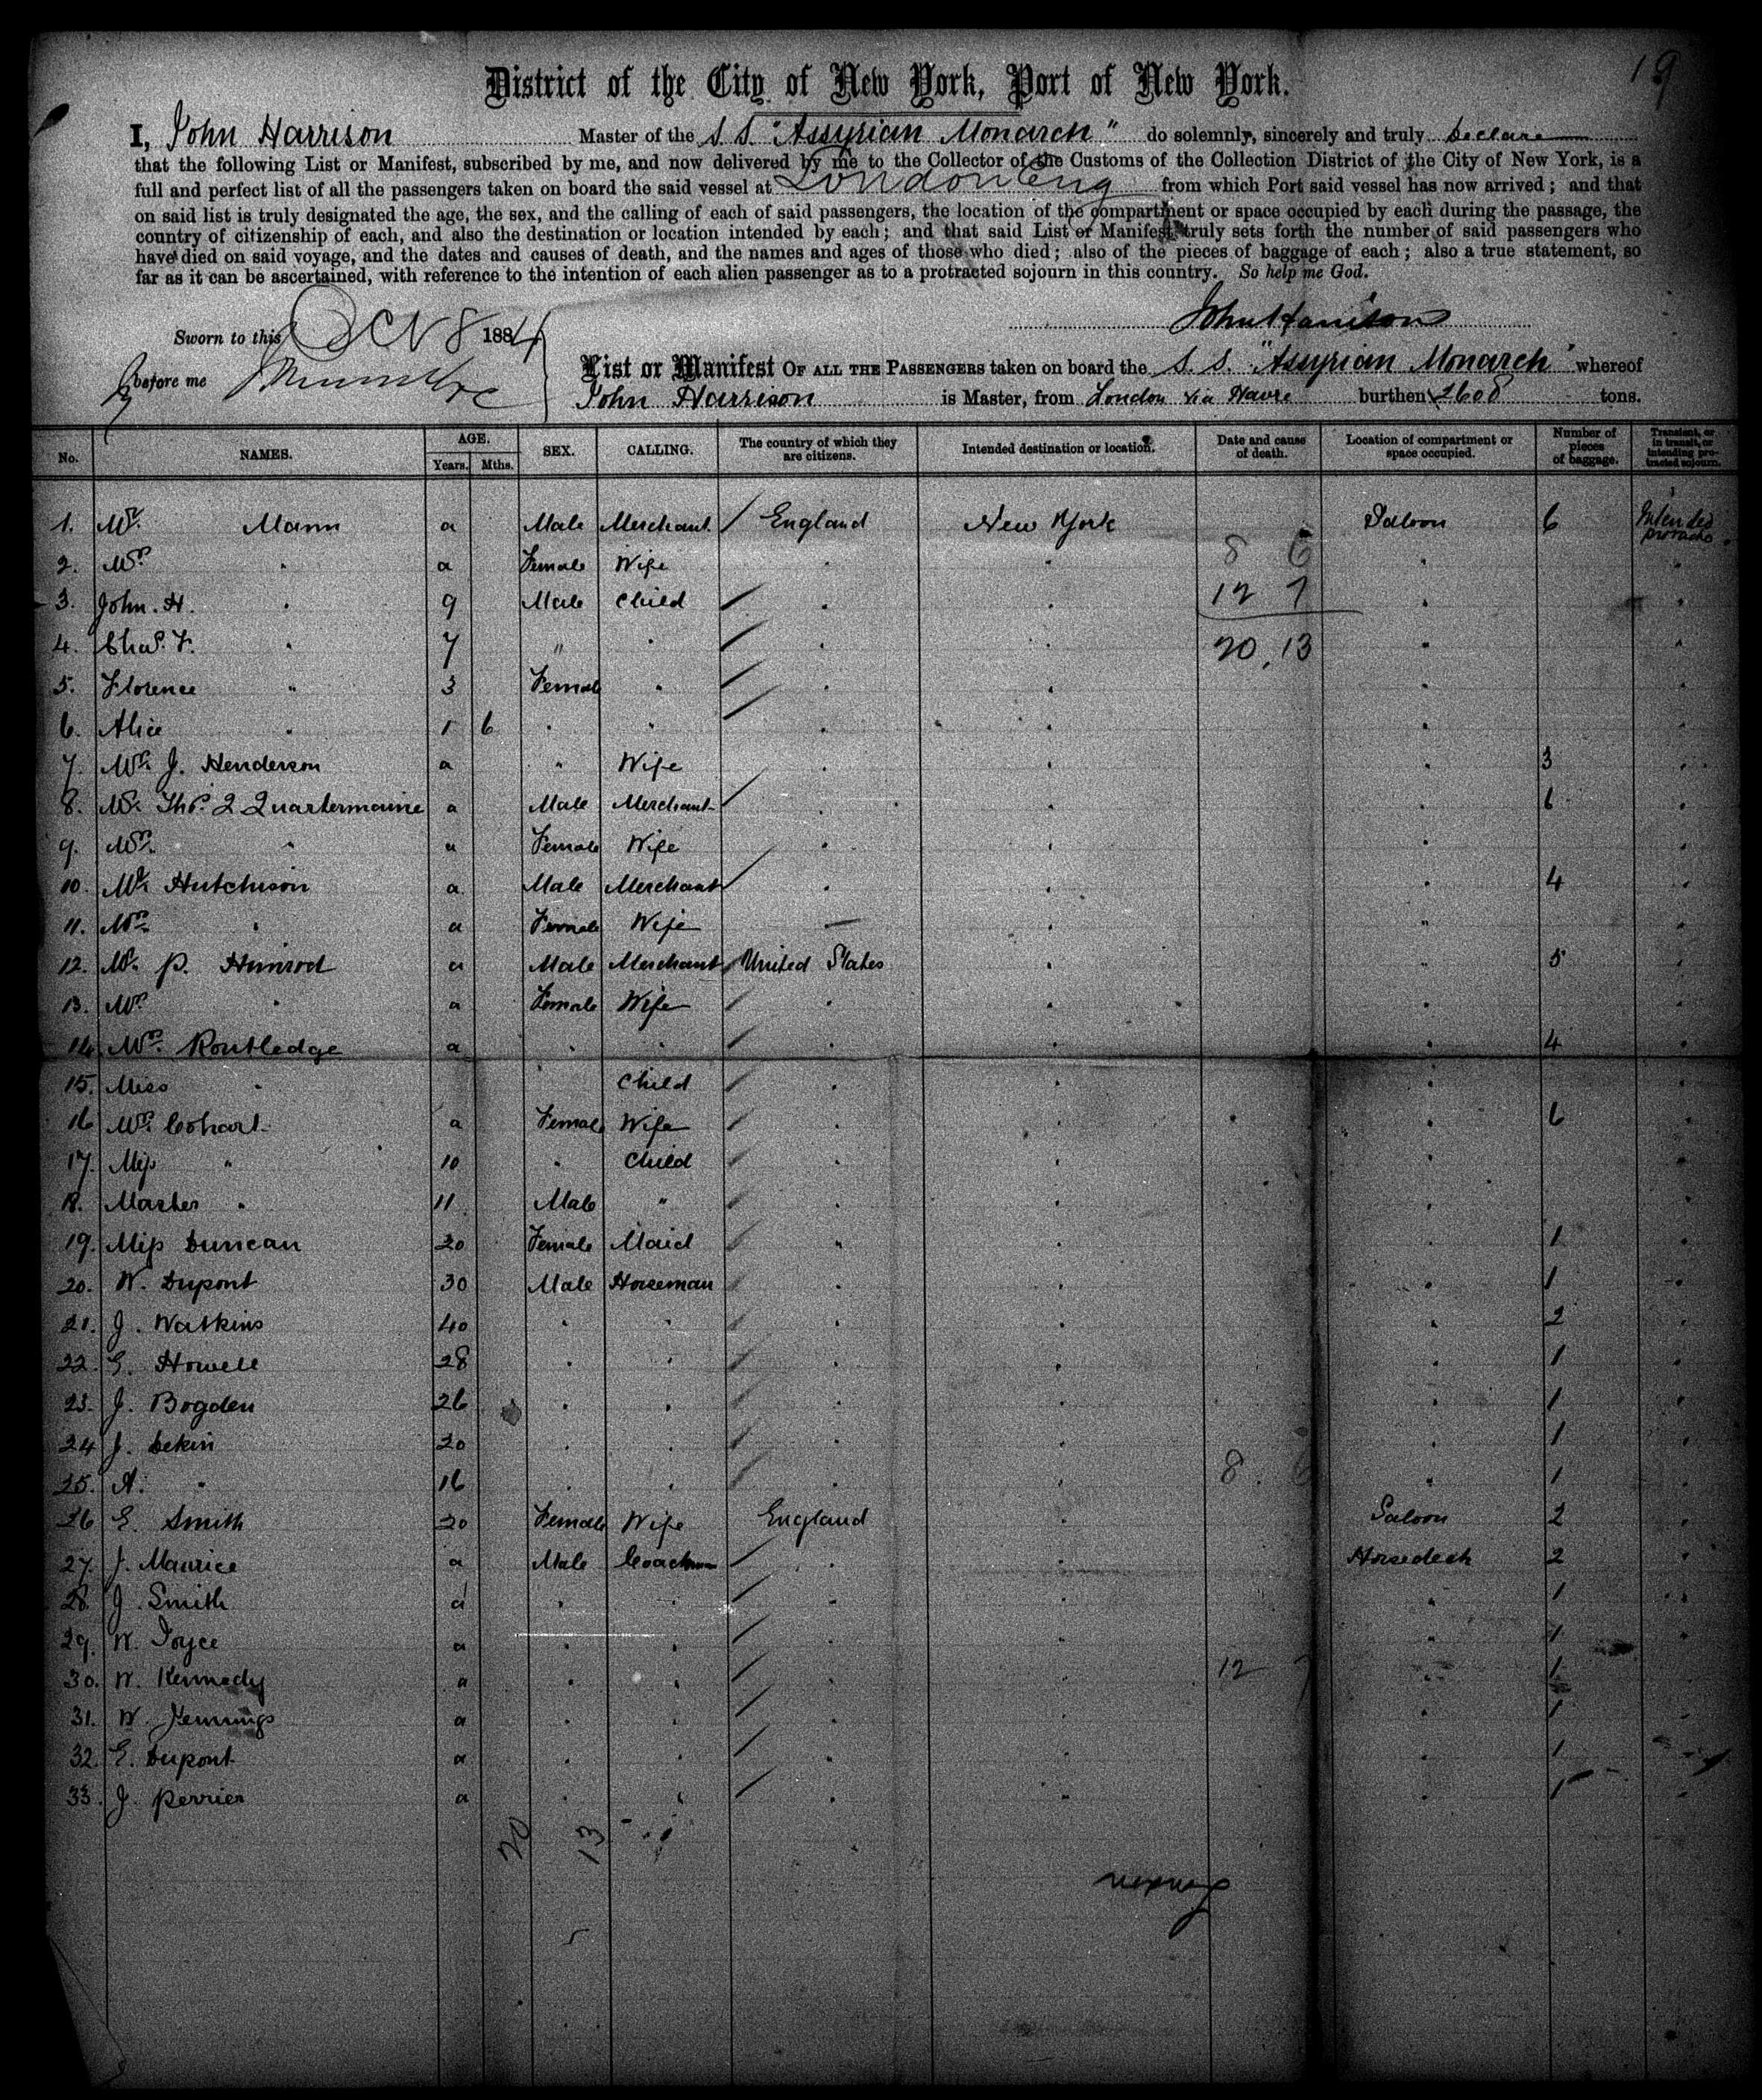 19
District of the City of New York, Port of New York.
I, John Harrison Master of the S.S. "Assyrian Monarch" do solemnly, sincerely and truly Declare
that the following List or Manifest, subscribed by me, and now delivered by me to the Collector of the Customs of the Collection District of the City of New York, is a
full and perfect list of all the passengers taken on board the said vessel at London Eng from which Port said vessel has now arrived; and that
on said list is truly designated the age, the sex, and the calling of each of said passengers, the location of the compartment or space occupied by each during the passage, the
country of citizenship of each, and also the destination or location intended by each; and that said List or Manifest truly sets forth the number of said passengers who
have died on said voyage, and the dates and causes of death, and the names and ages of those who died; also of the pieces of baggage of each; also a true statement, so
far as it can be ascertained, with reference to the intention of each alien passenger as to a protracted sojourn in this country. So help me God.
John Harrison
Sworn to this Oct 8 1884
before me
List or Manifest OF ALL THE PASSENGERS taken on board the S. S. "Assyrian Monarch" whereof
John Harrison is Master, from London via Havre burthen 2608 tons.
No. NAMES. AGE. Years. Mths. SEX. CALLING. The country of which they are citizens. Intended destination or location. Date and cause of death. Location of compartment or space occupied. Number of pieces of baggage. Transient, or in transit, or intending protracted sojourn.
1. Mr. Mann a Male Merchant / England New York Saloon 6 Intended
2. Mrs " a Female Wife " " 8 6 " "
3. John. H. " 9 Male Child / " " 12 7 " "
4. Chas. F. " 7 " " / " " 20,13 " "
5. Florence " 3 Female " / " " " "
6. Alice " 1 6 " " / " " " "
7. Mrs. J. Henderson a " Wife " " " 3 "
8. Mr. Thos. Q Quartermaine a Male Merchant / " " " 6 "
9. Mrs. " a Female Wife " " " "
10. Mr. Hutchison a Male Merchant / " " " 4 "
11. Mrs. " a Female Wife — " " "
12. Mr. P. Himrod a Male Merchant / United States " " 5 "
13. Mrs " a Female Wife / " " " "
14. Mrs. Routledge a " " / " " " 4 "
15. Miss " Child / " " " "
16 Mrs. Cohart a Female Wife / " " " 6 "
17. Miss " 10 " Child / " " " "
18. Master " 11 Male " / " " " "
19. Miss Duncan 20 Female Maid / " " " 1 "
20. W. Dupont 30 Male Horseman / " " " 1 "
21. J. Watkins 40 " " / " " " 2 "
22. G. Howell 28 " " / " " " 1 "
23. J. Bogden 26 " " / " " " 1 "
24 J. Dekin 20 " " / " " " 1 "
25. A. " 16 " " / " " 8 6 " 1 "
26 E. Smith 20 Female Wife England " Saloon 2 "
27. J. Maurice a Male Coachman / " " Horsedeck 2 "
28. J. Smith a " " / " " " 1 "
29. W. Joyce a " " / " " " 1 "
30. W. Kennedy a " " / " " 12 7 " 1 "
31. W. Jennings a " " / " " " 1 "
32. E. Dupont a " " / " " " 1 "
33. J. Perrier a " " / " " " 1
20 13